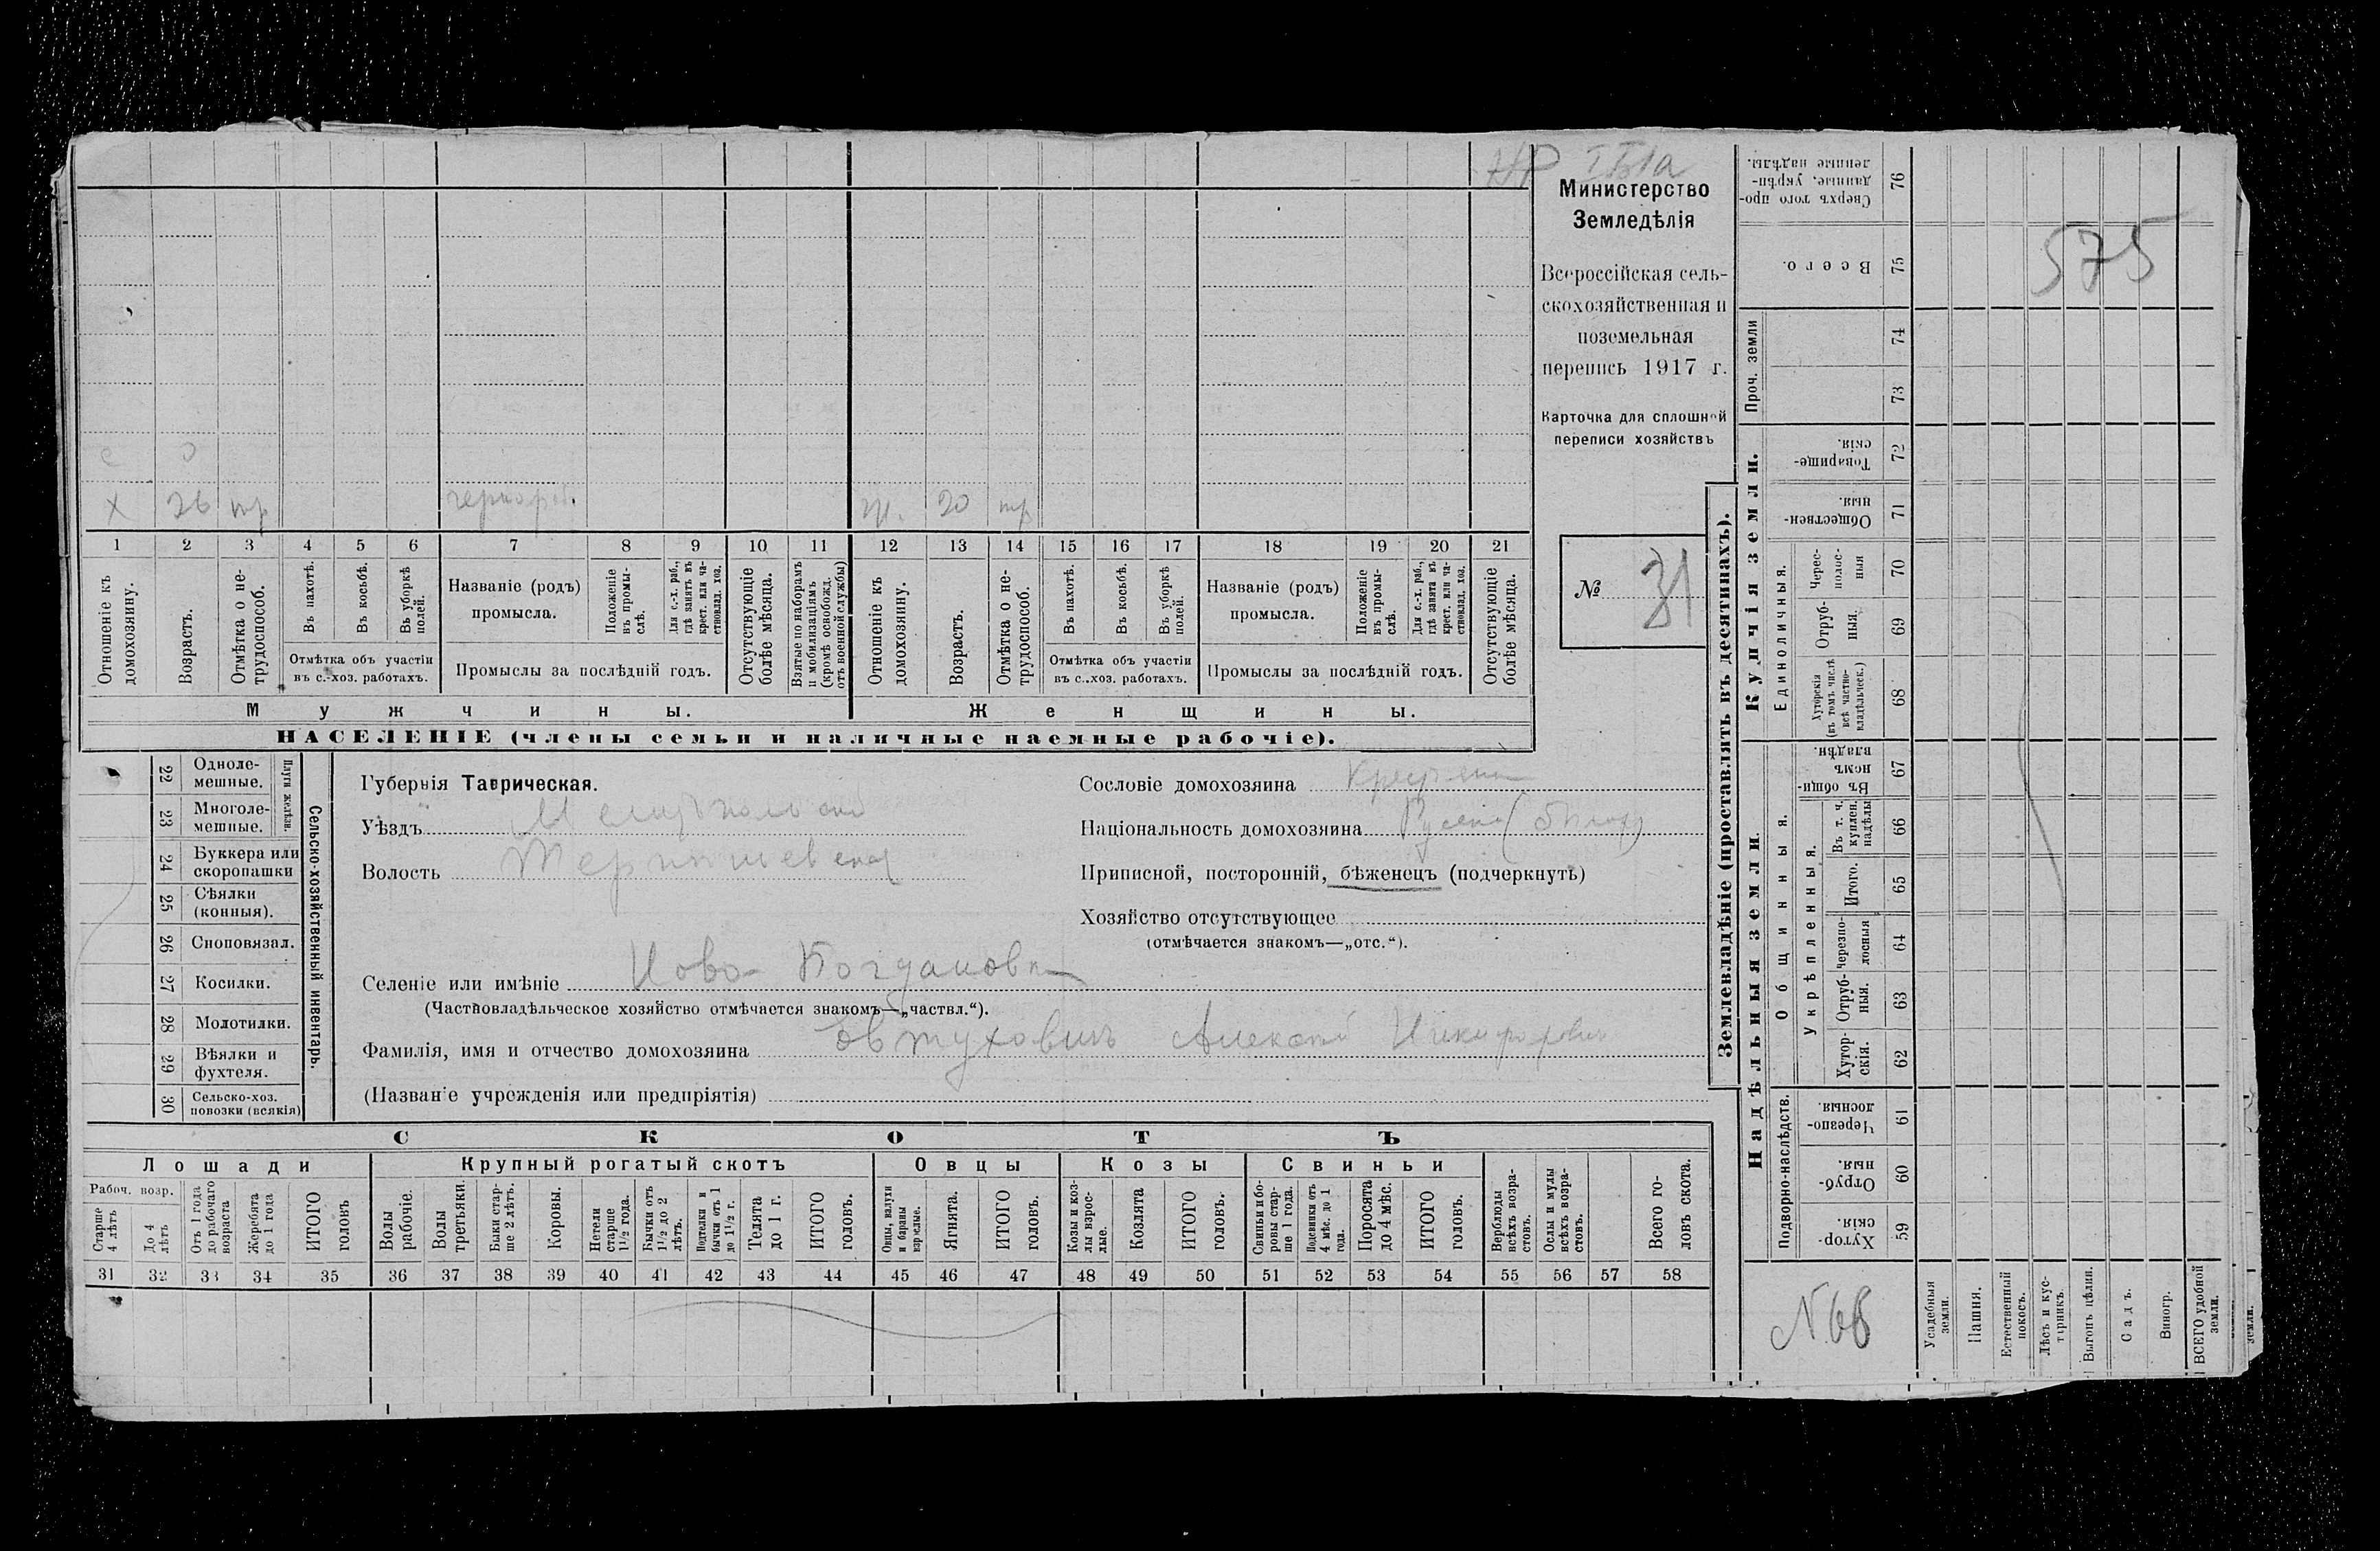 Министерство
Земледѣлія
Всероссійская сель-
скохозяйственная и
поземельная
перепись 1917 г.
Карточка для сплошной
переписи хозяйствъ
№ 31
х 26 тр чернораб. ж. 20 тр
1 2 3 4 5 6 7 8 9 10 11 12 13 14 15 16 17 18 19 20 21
Отношеніе къ домохозяину.
Возрастъ.
Отмѣтка о не-трудоспособ.
Въ пахотѣ.
Въ косьбѣ.
Въ уборкѣ полей.
Отмѣтка объ участіи
въ с.-хоз. работахъ.
Названіе (родъ)
промысла.
Положеніе въ промы-слѣ.
Для с.-х. раб., гдѣ занятъ въ крест. или ча-стновлад. хоз.
Промыслы за послѣдній годъ.
Отсутствующіе болѣе мѣсяца.
Взятые по наборамъ и мобилизаціямъ (кромѣ освобожд. отъ военной службы)
Отношеніе къ домохозяину.
Возрастъ.
Отмѣтка о не-трудоспособ.
Въ пахотѣ.
Въ косьбѣ.
Въ уборкѣ полей.
Отмѣтка объ участіи
въ с.-хоз. работахъ.
Названіе (родъ)
промысла.
Положеніе въ промы-слѣ.
Для с.-х. раб., гдѣ занята въ крест. или ча-стновлад. хоз.
Промыслы за послѣдній годъ.
Отсутствующіе болѣе мѣсяца.
Мужчины.
Женщины.
НАСЕЛЕНІЕ (члены семьи и наличные наемные рабочіе).
22 Одноле-мешные.
23 Многоле-мешные.
Плуги желѣзн.
24 Буккера или скоропашки
25 Сѣялки (конныя).
26 Сноповязал.
27 Косилки.
28 Молотилки.
29 Вѣялки и фухтеля.
30 Сельско-хоз. повозки (всякія)
Сельско-хозяйственный инвентарь.
Губернія Таврическая.
Уѣздъ Мелитопольскій
Волость
Сословіе домохозяина
Національность домохозяина
Приписной, посторонній, бѣженецъ (подчеркнуть)
Хозяйство отсутствующее
(отмѣчается знакомъ—„отс.“).
Селеніе или имѣніе Ново-Богдановка
(Частновладѣльческое хозяйство отмѣчается знакомъ—„частвл.“).
Фамилія, имя и отчество домохозяина Евтуховичъ Алексѣй Никифоровичъ
(Названіе учрежденія или предпріятія)
СКОТЪ
Лошади
Крупный рогатый скотъ
Овцы
Козы
Свиньи
Рабоч. возр.
Старше 4 лѣтъ
До 4 лѣтъ
Отъ 1 года до рабочаго возраста
Жеребята до 1 года
ИТОГО головъ
Волы рабочіе.
Волы третьяки.
Быки стар-ше 2 лѣтъ.
Коровы.
Нетели старше 1 1/2 года.
Бычки отъ 1 1/2 до 2 лѣтъ.
Подтелки и бычки отъ 1 до 1 1/2 г.
Телята до 1 г.
ИТОГО головъ.
Овцы, валухи и бараны взрослые.
Ягнята.
ИТОГО головъ.
Козы и коз-лы взрос-лые.
Козлята
ИТОГО головъ.
Свиньи и бо-ровы стар-ше 1 года.
Подсвинки отъ 4 мѣс. до 1 года.
Поросята до 4 мѣс.
ИТОГО головъ.
Верблюды всѣхъ возра-стовъ.
Ослы и мулы всѣхъ возра-стовъ.
Всего го-ловъ скота.
31 32 33 34 35 36 37 38 39 40 41 42 43 44 45 46 47 48 49 50 51 52 53 54 55 56 57 58
Землевладѣніе (проставлять въ десятинахъ).
Купчія земли.
Надѣльныя земли
Сверхъ того про-данные, укрѣп-ленные надѣлы. 76
Всего. 75
575
Проч. земли
74
73
Товарище-скія. 72
Обществен-ныя. 71
Единоличныя.
Черес-полос-ныя 70
Отруб-ныя. 69
Хуторскія (въ томъ числѣ всѣ частно-владѣльческ.) 68
Общинныя.
Въ общи-номъ владѣн. 67
Укрѣпленныя.
Въ т. ч. куплен. надѣлы 66
Итого. 65
Черезпо-лосныя 64
Отруб-ныя. 63
Хутор-скія. 62
Подворно-наслѣдств.
Черезпо-лосныя. 61
Отруб-ныя. 60
Хутор-скія. 59
N 68
Усадебныя земли.
Пашня.
Естественный покосъ.
Лѣсъ и кус-тарникъ.
Выгонъ цѣлин.
Садъ.
Виногр.
ВСЕГО удобной земли.